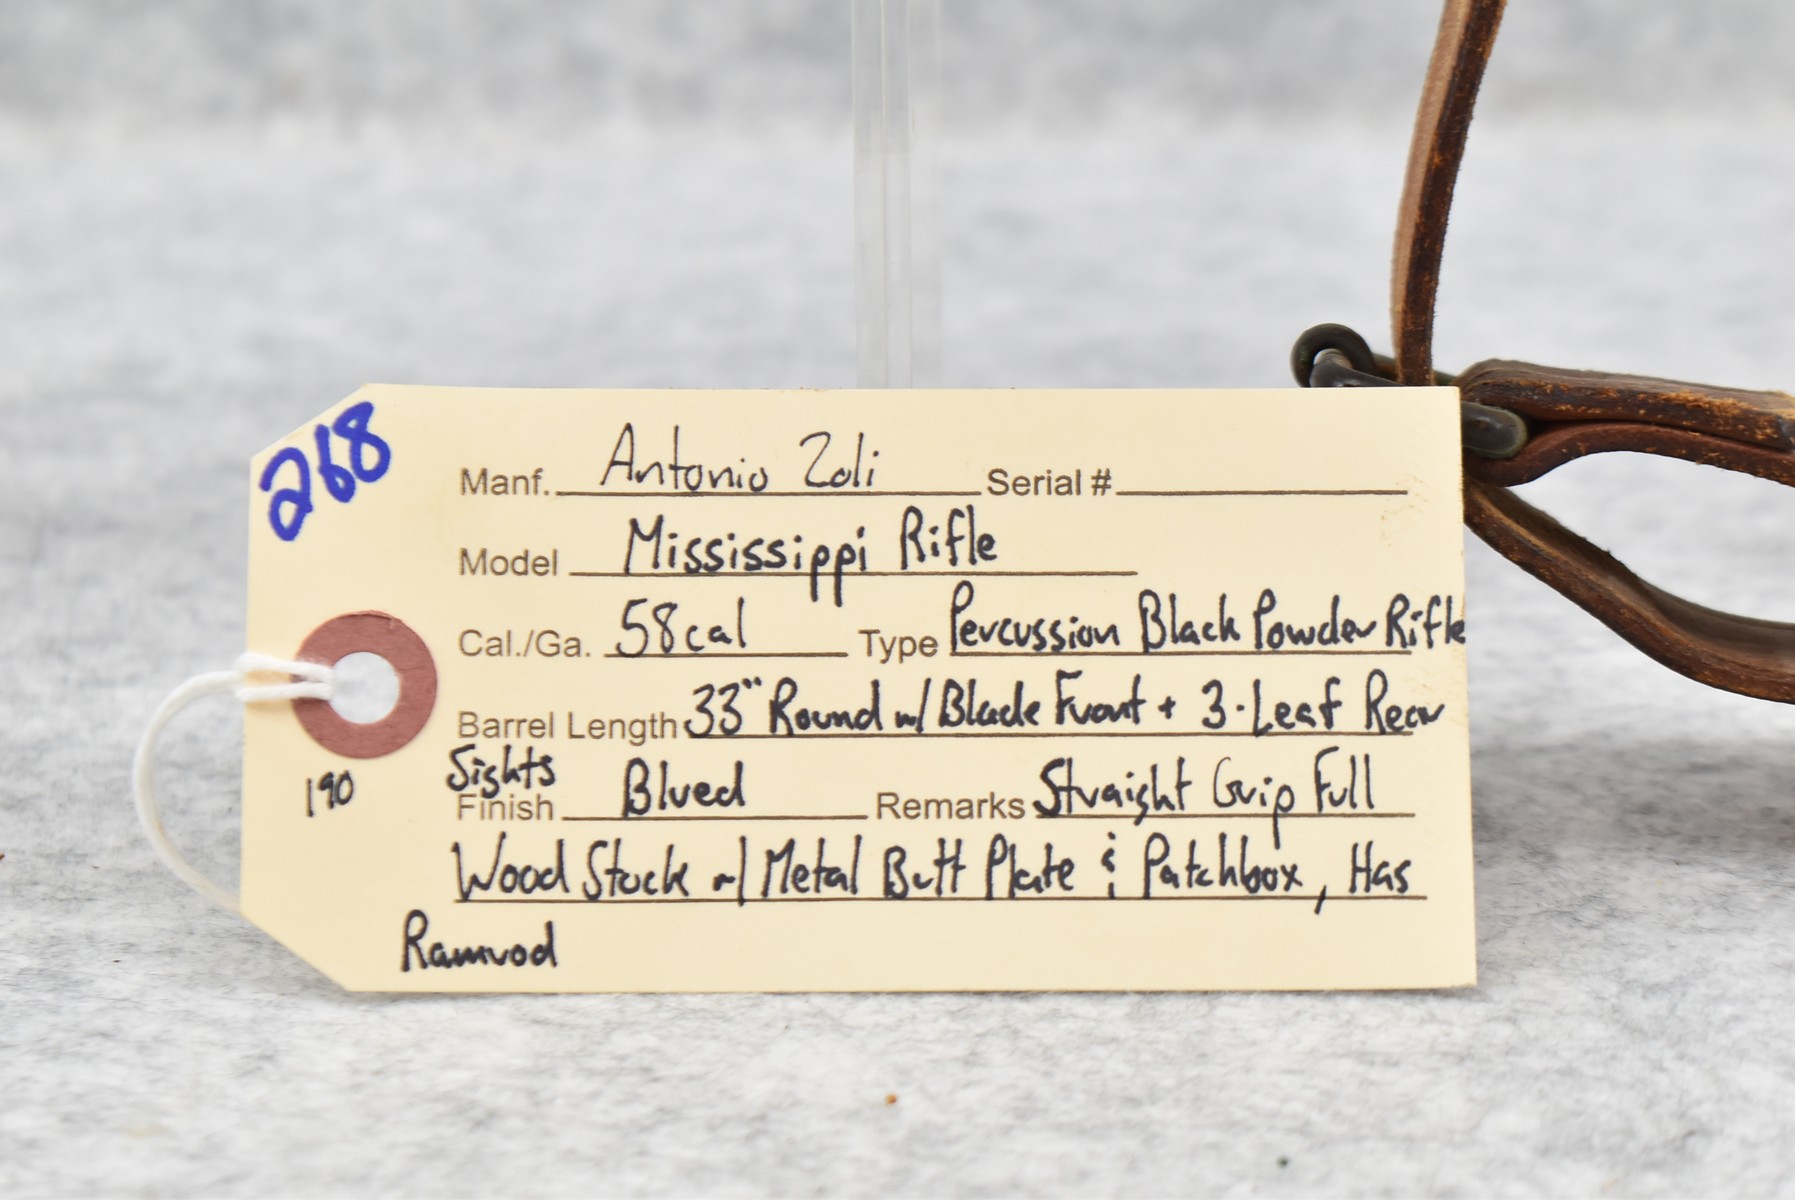 268
Manf. Antonio Zoli Serial #
Model Mississippi Rifle
Cal./Ga. 58cal Type Percussion Black Powder Rifle
Barrel Length 33" Round w/ Blade Front + 3-Leaf Rear
Sights
Finish Blued Remarks Straight Grip Full
190
Wood Stock w/ Metal Butt Plate & Patchbox, Has
Ramrod